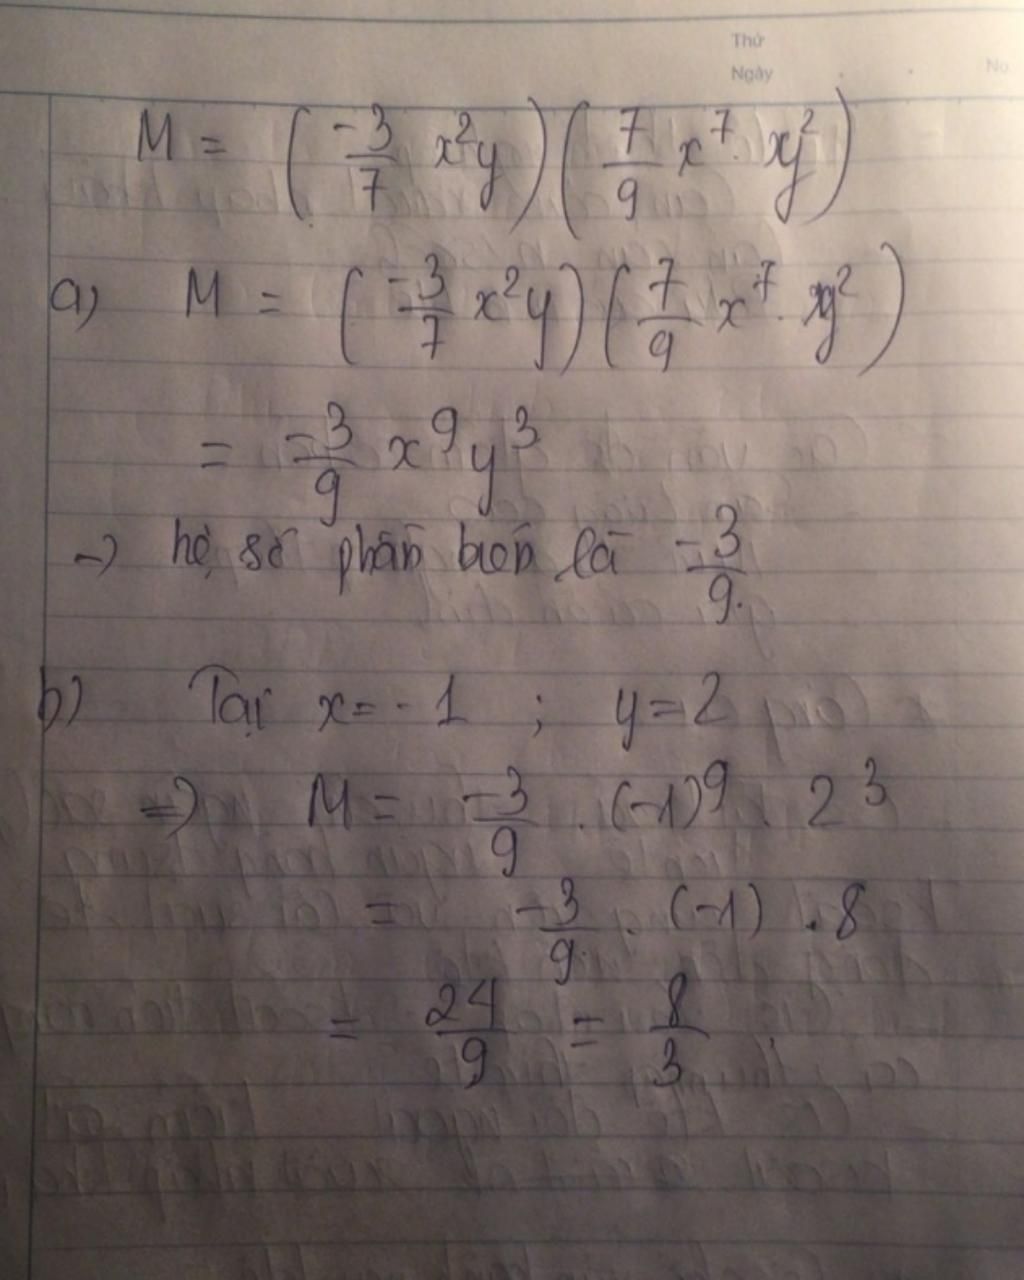 Thứ
Ngày
No.
M = (-3/7 x²y)(7/9 x⁷. xy²)
a) M = (-3/7 x²y)(7/9 x⁷. xy²)
= -3/9 x⁹y³
→ hệ số phần biến là -3/9.
b) Tại x=-1 ; y=2
=> M = -3/9 . (-1)⁹ . 2³
= -3/9 . (-1) . 8
= 24/9 = 8/3 .